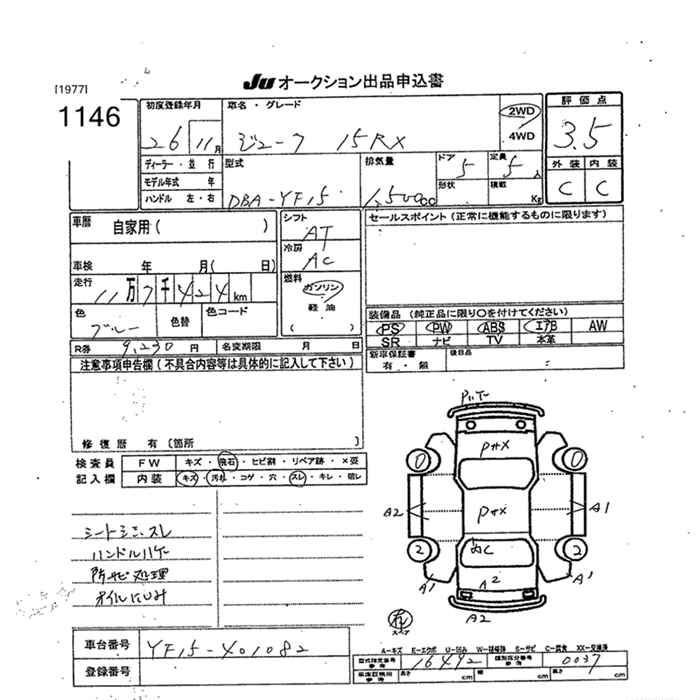 Ju オークション出品申込書
[1977]
1146
初度登録年月 車名・グレード 2WD 4WD 評価点
26 11月 ジューク 15RX 3.5
ディーラー・並行 型式 排気量 ドア 定員 外装 内装
モデル年式 年 DBA-YF15 1,500cc 5 5人 C C
ハンドル 左・右 形状 積載 Kg
車歴 自家用( ) シフト AT セールスポイント(正常に機能するものに限ります)
冷房 AC
車検 年 月( 日)
走行 11万7千424km 燃料 ガソリン 軽油 ( )
色 ブルー 色替 色コード
装備品(純正品に限り〇を付けてください)
PS PW ABS エアB AW
SR ナビ TV 本革
R券 9,230円 名変期限 月 日 新車保証書 有・無 後日品
注意事項申告欄(不具合内容等は具体的に記入して下さい)
修復歴 有〔箇所 〕
検査員 FW キズ・飛石・ヒビ割・リペア跡・×要
記入欄 内装 キズ・汚れ・コゲ・穴・スレ・キレ・切レ
シートシミ、スレ
ハンドルハゲ
防サビ処理
オイルにじみ
Pハゲ
PサX
0 0
A2 PサX A1
2 2
A1 A2 A1
A2
有
スペア
車台番号 YF15-401082
登録番号
A-キズ E-エクボ U-凹み W-補修跡 S-サビ C-腐食 XX-交換済
型式指定番号 参考 16492 類別区分番号 参考 0037
長さ cm 幅 cm 高さ cm